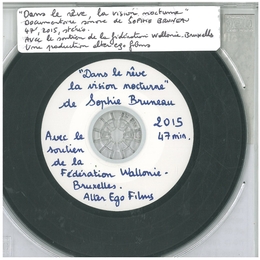 "Dans le rêve, la vision nocturne"
Documentaire sonore de SOPHIE BRUNEAU
47', 2015, stéréo.
Avec le soutien de la fédération Wallonie-Bruxelles
Une production alter ego films
"Dans le rêve
la vision nocturne"
de Sophie Bruneau
2015
47 min.
Avec le
soutien
de la
Fédération Wallonie-
Bruxelles.
Alter Ego Films